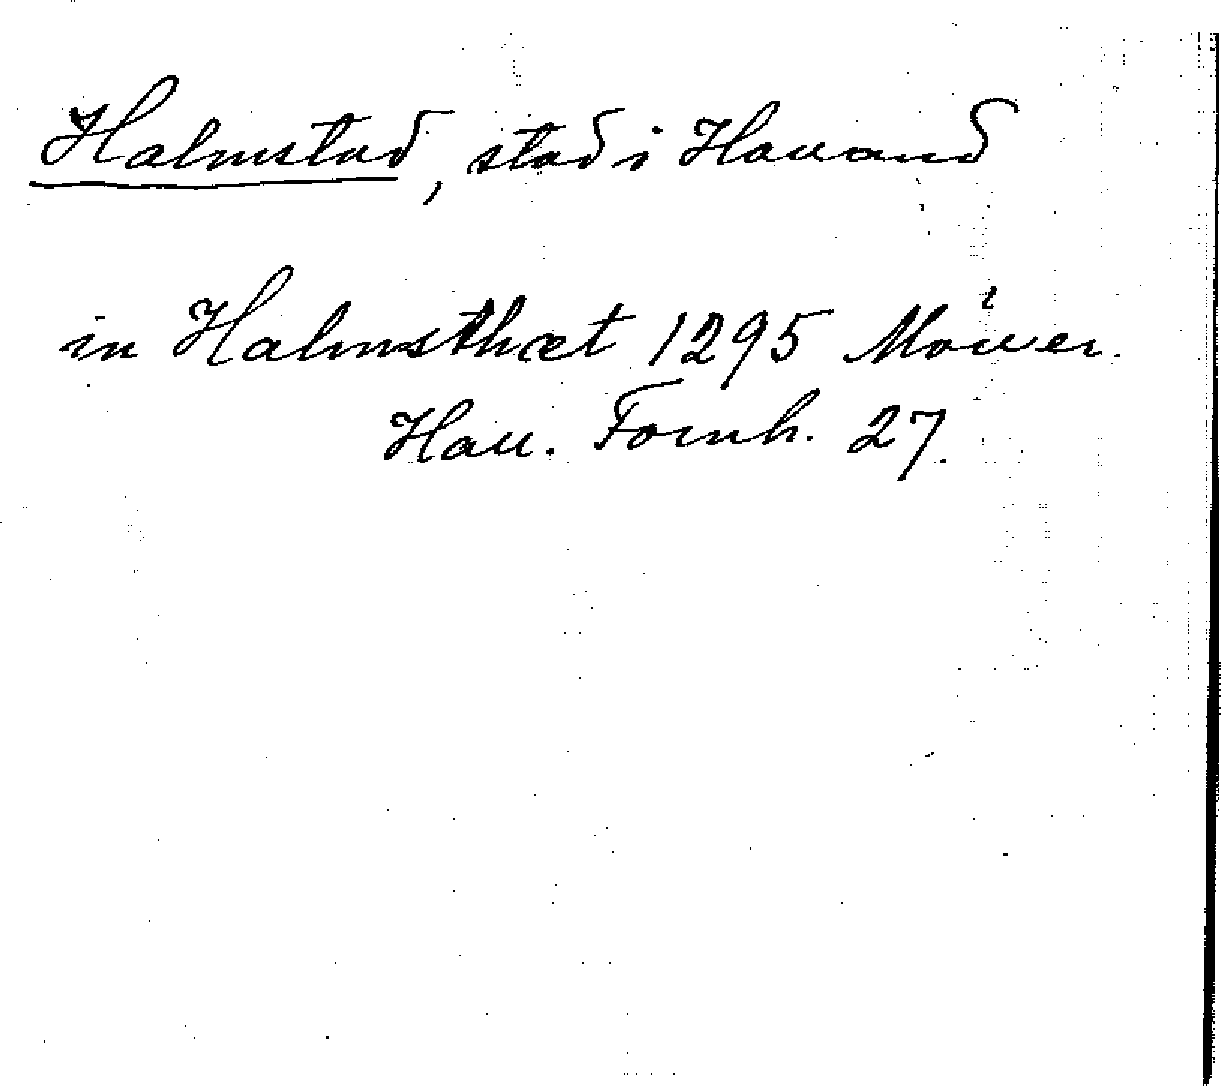 Halmstad, stad i Halland
in Halmsthæt 1295 Möller.
Hall. Fornh. 27.